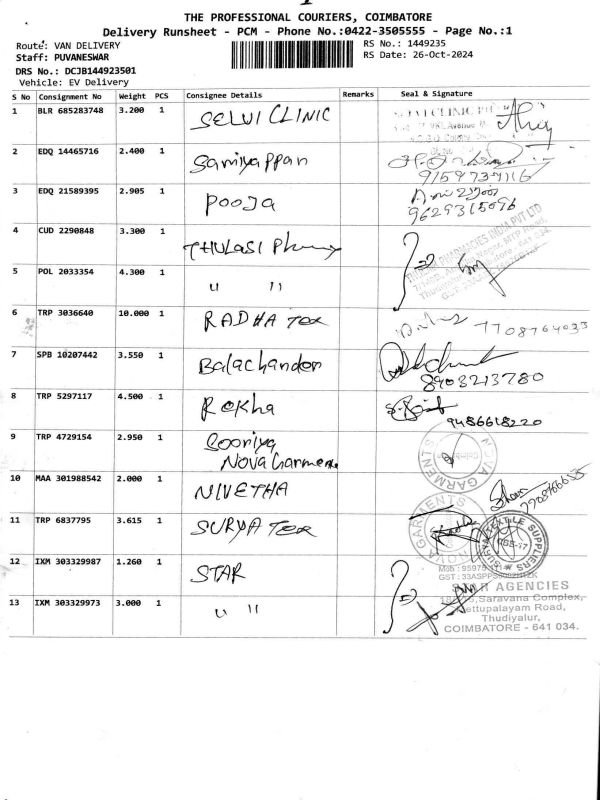 THE PROFESSIONAL COURIERS, COIMBATORE
Delivery Runsheet - PCM - Phone No.:0422-3505555 - Page No.:1
Route: VAN DELIVERY RS No.: 1449235
Staff: PUVANESWAR RS Date: 26-Oct-2024
DRS No.: DCJB144923501
Vehicle: EV Delivery
S No Consignment No Weight PCS Consignee Details Remarks Seal & Signature
1 BLR 685283748 3.200 1 SELVI CLINIC
2 EDQ 14465716 2.400 1 Samiyappan
3 EDQ 21589395 2.905 1 Pooja 9629315096
4 CUD 2290848 3.300 1 THULASI Pharmacy
5 POL 2033354 4.300 1 " "
6 TRP 3036640 10.000 1 RADHA Tex
7 SPB 10207442 3.550 1 Balachander 8903213780
8 TRP 5297117 4.500 1 Rekha 9486618220
9 TRP 4729154 2.950 1 Sooriya
Nova Garments NOVA GARMENTS
10 MAA 301988542 2.000 1 NIVETHA
11 TRP 6837795 3.615 1 SURYA Tex NOVA GARMENTS SURYA TEXTILE SUPPLIERS
12 IXM 303329987 1.260 1 STAR
AGENCIES
Saravana Complex,
Mettupalayam Road,
13 IXM 303329973 3.000 1 " " Thudiyalur,
COIMBATORE - 641 034.